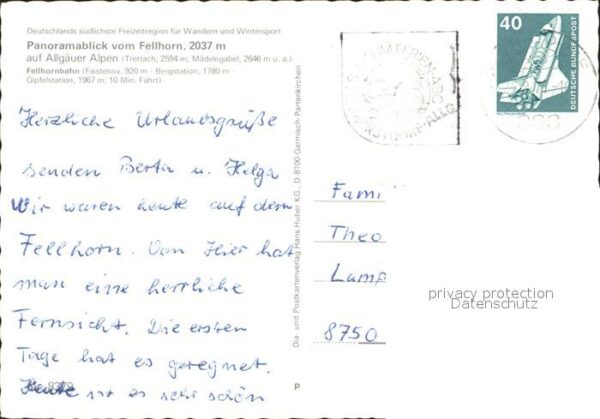 Deutschlands südlichste Freizeitregion für Wandern und Wintersport
Panoramablick vom Fellhorn, 2037 m
auf Allgäuer Alpen (Trettach, 2594 m, Mädelegabel, 2646 m u. a.)
Fellhornbahn (Faistenoy, 920 m - Bergstation, 1780 m -
Gipfelstation, 1967 m, 10 Min. Fahrt)
Herzliche Urlaubsgrüße
senden Berta u. Helga
Wir waren heute auf dem
Fellhorn. Von Hier hat
man eine herrliche
Fernsicht. Die ersten
Tage hat es geregnet.
Heute ist es sehr schön
8379
Dia- und Postkartenverlag Hans Huber KG., D 8100 Garmisch-Partenkirchen
P
40
DEUTSCHE BUNDESPOST
Fami
Theo
Lamp
8750
privacy protection
Datenschutz